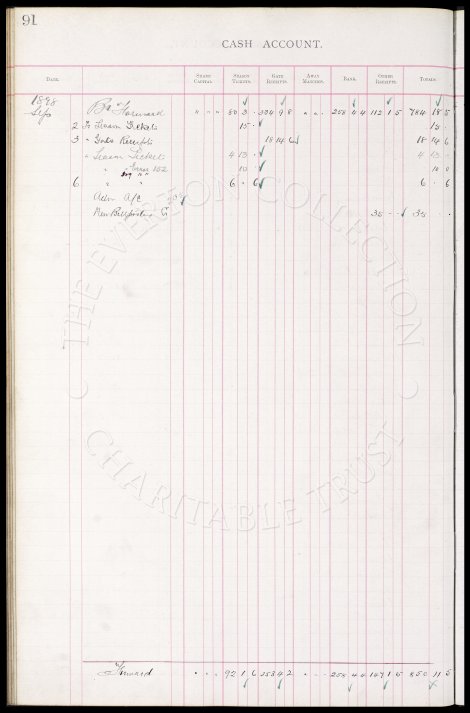 91
CASH ACCOUNT.
DATE. SHARE CAPITAL. SEASON TICKETS. GATE RECEIPTS. AWAY MATCHES. BANK. OTHER RECEIPTS. TOTALS.
1898
Forward 80 3 . 334 9 8 258 4 4 112 1 5 784 18 5
2 To Season Tickets 15 . 15 .
3 " Gate Receipts 18 14 6 18 14 6
" Season Tickets 4 13 . 4 13 .
" " 152 10 10 0
6 " " 6 . 6 6 . 6
Adv. A/c
35 - - 35 . .
Forward 92 1 6 353 4 2 258 4 4 147 1 5 850 11 5
THE EVERTON COLLECTION
CHARITABLE TRUST